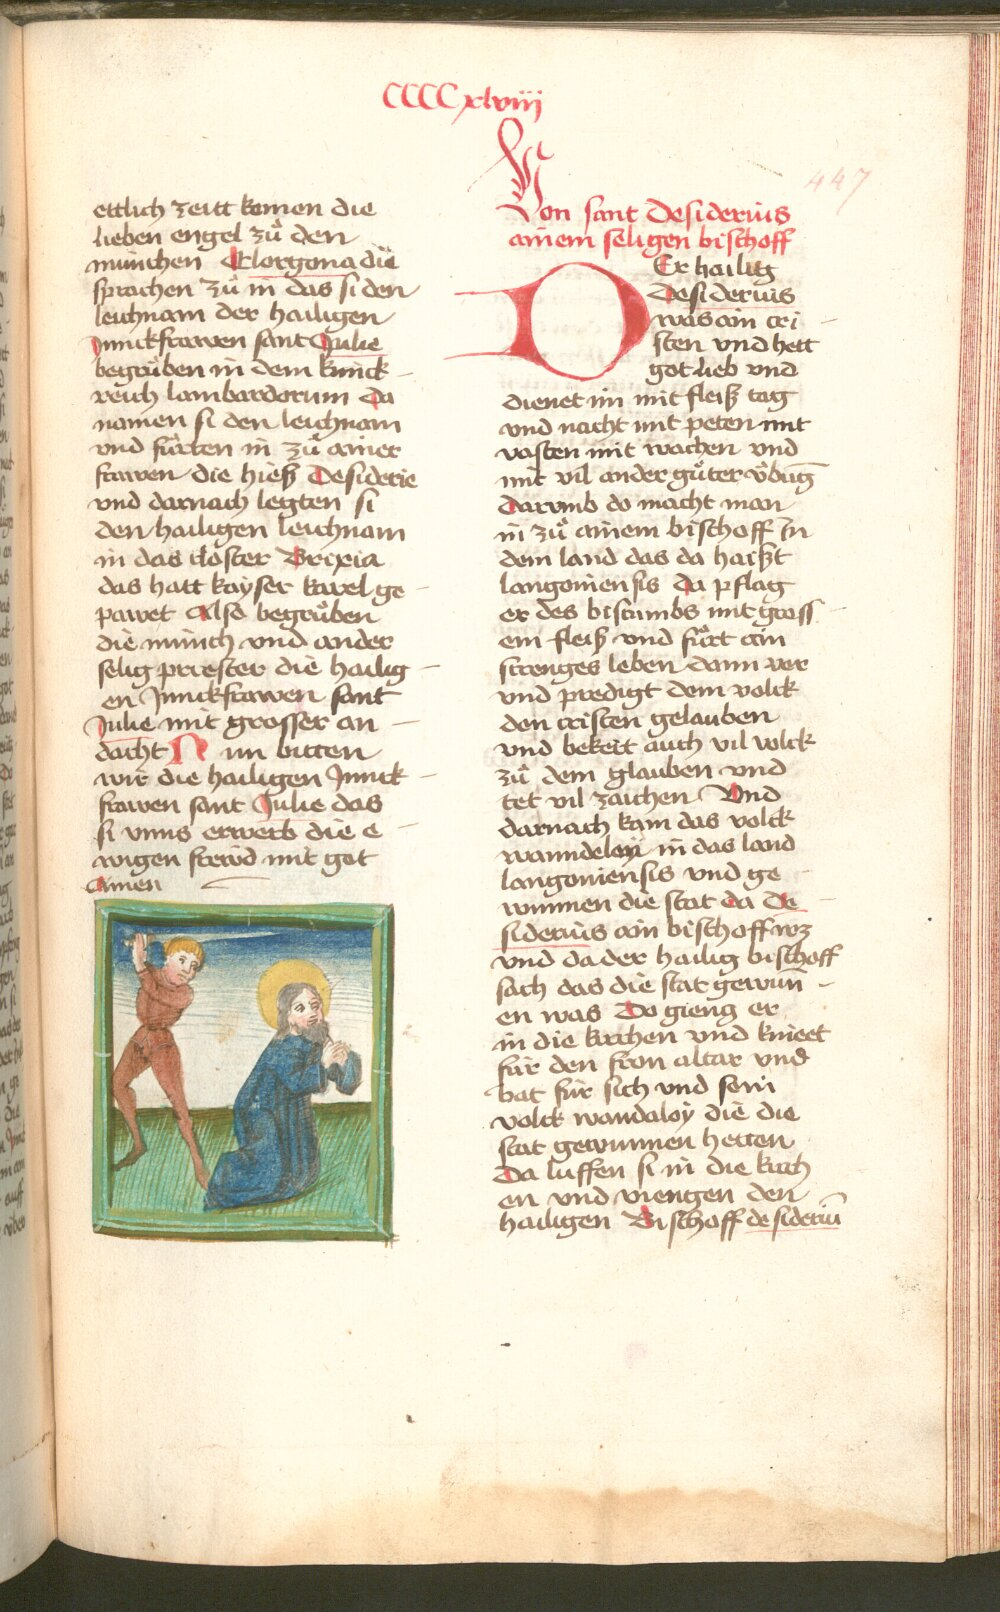 CCCCxlviij
447
ettlich zeitt komen die
lieben engel zů den
münchen Klorgona die
sprachen zů in das si den
leichnam der hailigen
Junckfrawen sant Julie
begrůben in dem künck
reich lambardorum Da
namen si den leichnam
vnd fůrten in zů ainer
frawen die hieß Desiderie
vnd darnach legten si
den hailigen leichnam
in das closter Brixia
das hatt kayser karel ge
pawet Also begrůben
die münch vnd ander
selig priester die hailig
en Junckfrawen sant
Julie mit grosser an
dacht Nun bitten
wir die hailigen Junck
frawen sant Julie das
si vnns erwerb die e
wigen frewd mit got
Amen
Von sant Desiderius
ainem seligen bischoff
Der hailig
Desiderius
was ain cri
sten vnd hett
got lieb vnd
dienet im mit fleiß tag
vnd nacht mit peten mit
vasten mit wachen vnd
mit vil ander gůter v̈bung
Darvmb do macht man
in zů ainem bischoff In
dem land das da haißt
langoniensis Da pflag
er des bistumbs mit gross
em fleiß vnd fůrt ain
strenges leben dann ver
vnd predigt dem volck
den cristen gelauben
vnd bekert auch vil volck
zů dem glauben vnd
tet vil zaichen Vnd
darnach kam das volck
wanndeloy in das land
langoniensis vnd ge
wunnen die stat da De
siderius ain bischoff wz
vnd da der hailig bischoff
sach das die stat gewun̄
en was Do gieng er
in die kirchen vnd knieet
für den fron altar vnd
bat für sich vnd sein
volck wandaloy die die
stat gewunnen hetten
Da luffen si in die kirch
en vnd viengen den
hailigen Bischoff desideriu̅